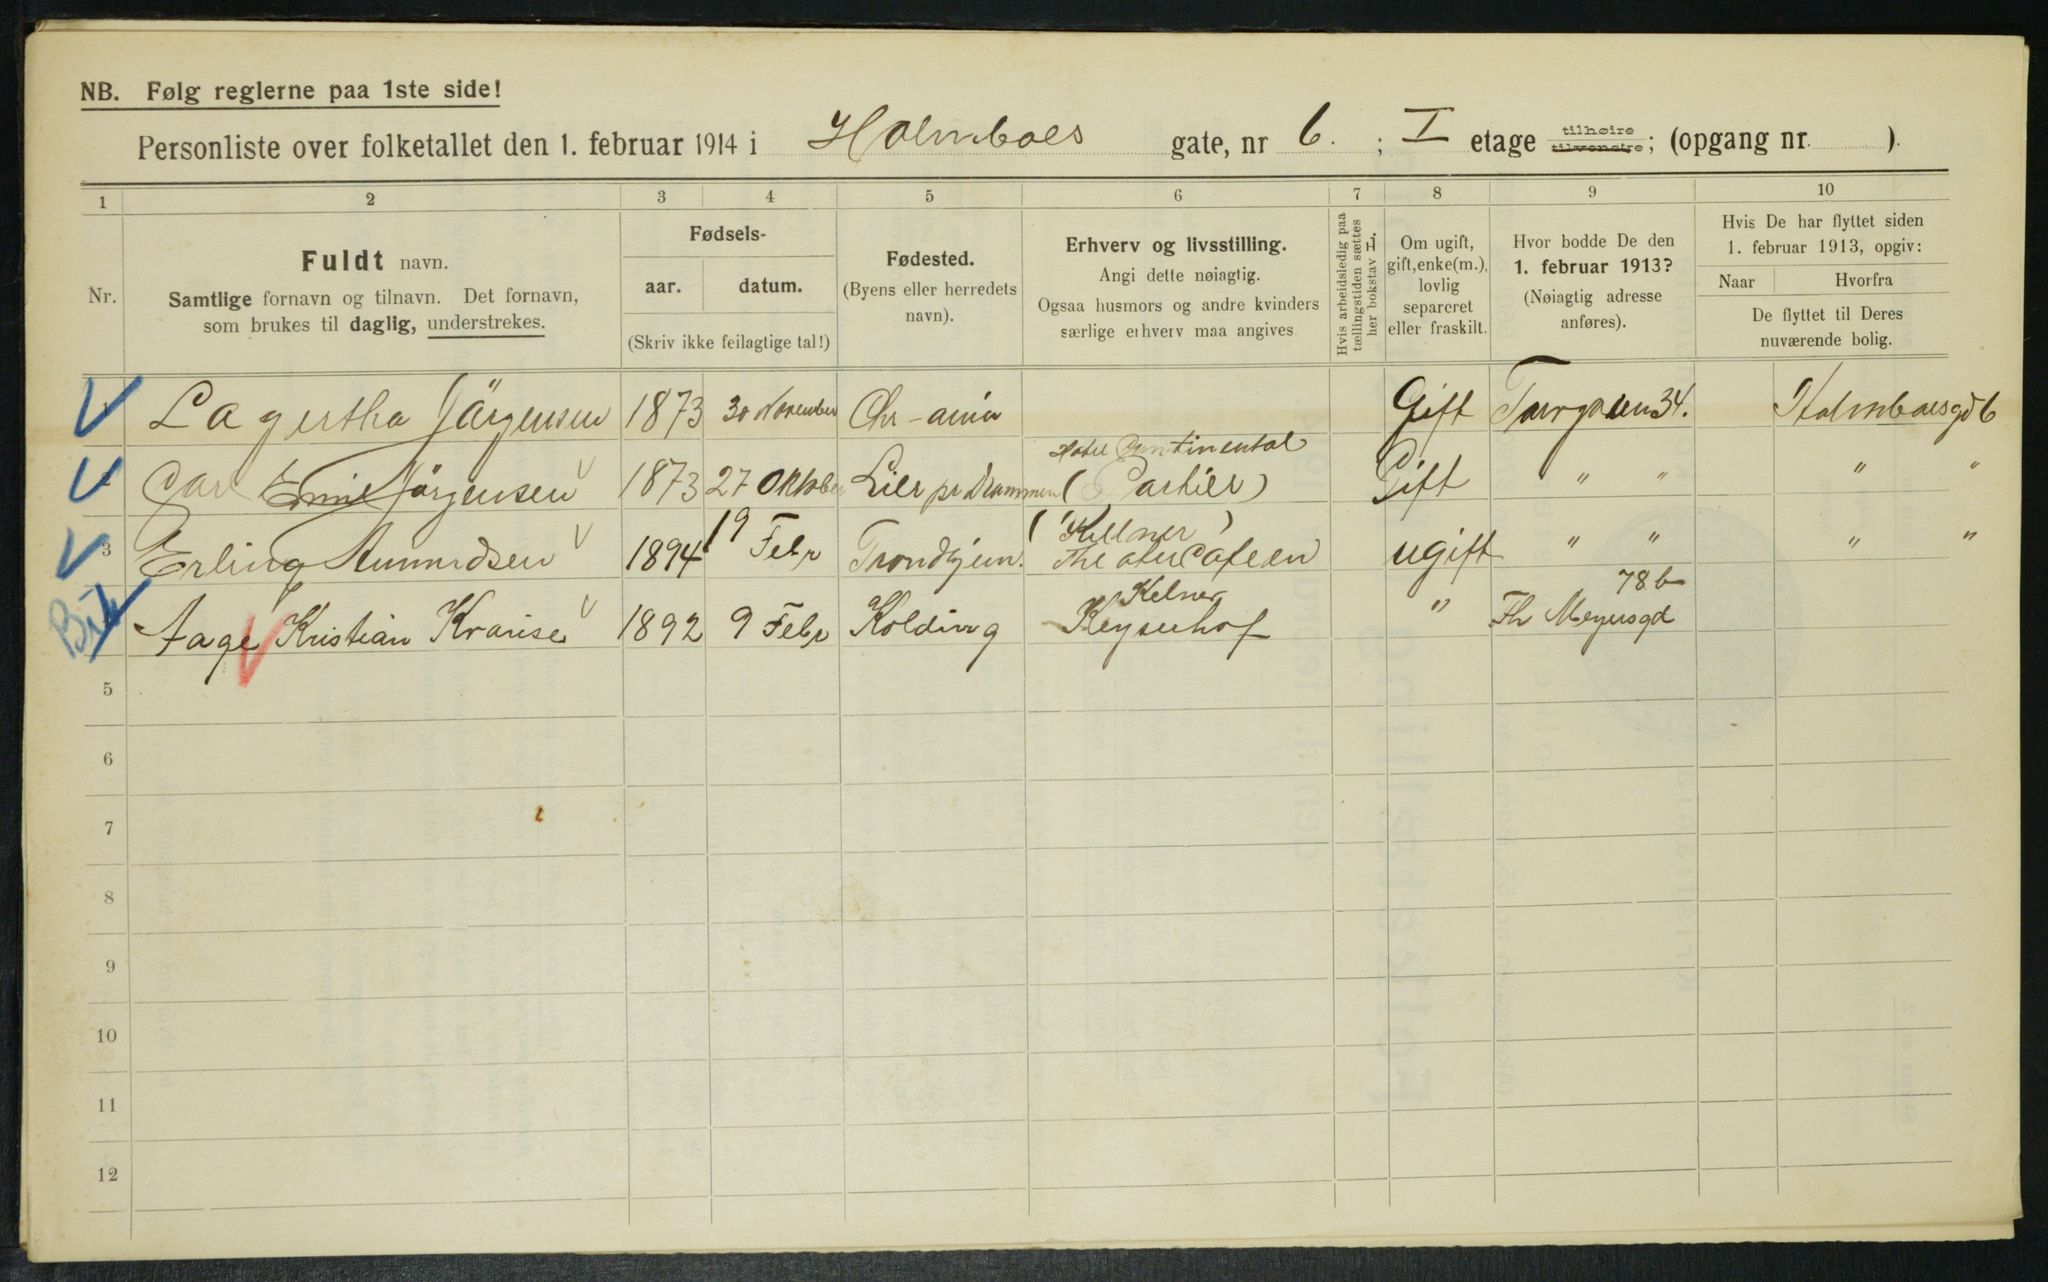 NB. Følg reglerne paa 1ste side!
Personliste over folketallet den 1. februar 1914 i Holmboes gate, nr 6. ; I etage tilhøire tilvenstre; (opgang nr. ).
1 2 3 4 5 6 7 8 9 10
Nr.
Fuldt navn.
Samtlige fornavn og tilnavn. Det fornavn,
som brukes til daglig, understrekes.
Fødsels-
aar. datum.
(Skriv ikke feilagtige tal!)
Fødested.
(Byens eller herredets
navn).
Erhverv og livsstilling.
Angi dette nøiagtig.
Ogsaa husmors og andre kvinders
særlige erhverv maa angives.
Hvis arbeidsledig paa
tællingstiden sættes
her bokstav L.
Om ugift,
gift, enke(m.),
lovlig
separeret
eller fraskilt.
Hvor bodde De den
1. februar 1913?
(Nøiagtig adresse
anføres).
Hvis De har flyttet siden
1. februar 1913, opgiv:
Naar Hvorfra
De flyttet til Deres
nuværende bolig.
Lagertha Jörgensen 1873 30 November Chr-ania Gift 34. Holmboesgd 6
Carl Emil Jörgensen 1873 27 Oktober Lier pr Drammen Hotel Continental (Portier) Gift " " " "
3 Erling Amundsen 1894 19 Febr Trondhjem. (Kellner) Theatercafeen ugift " " " "
Aage Kristian Krause 1892 9 Febr Kolding Kelner Keyserhof " Th Meyersgd 78b
5
6
7
8
9
10
11
12